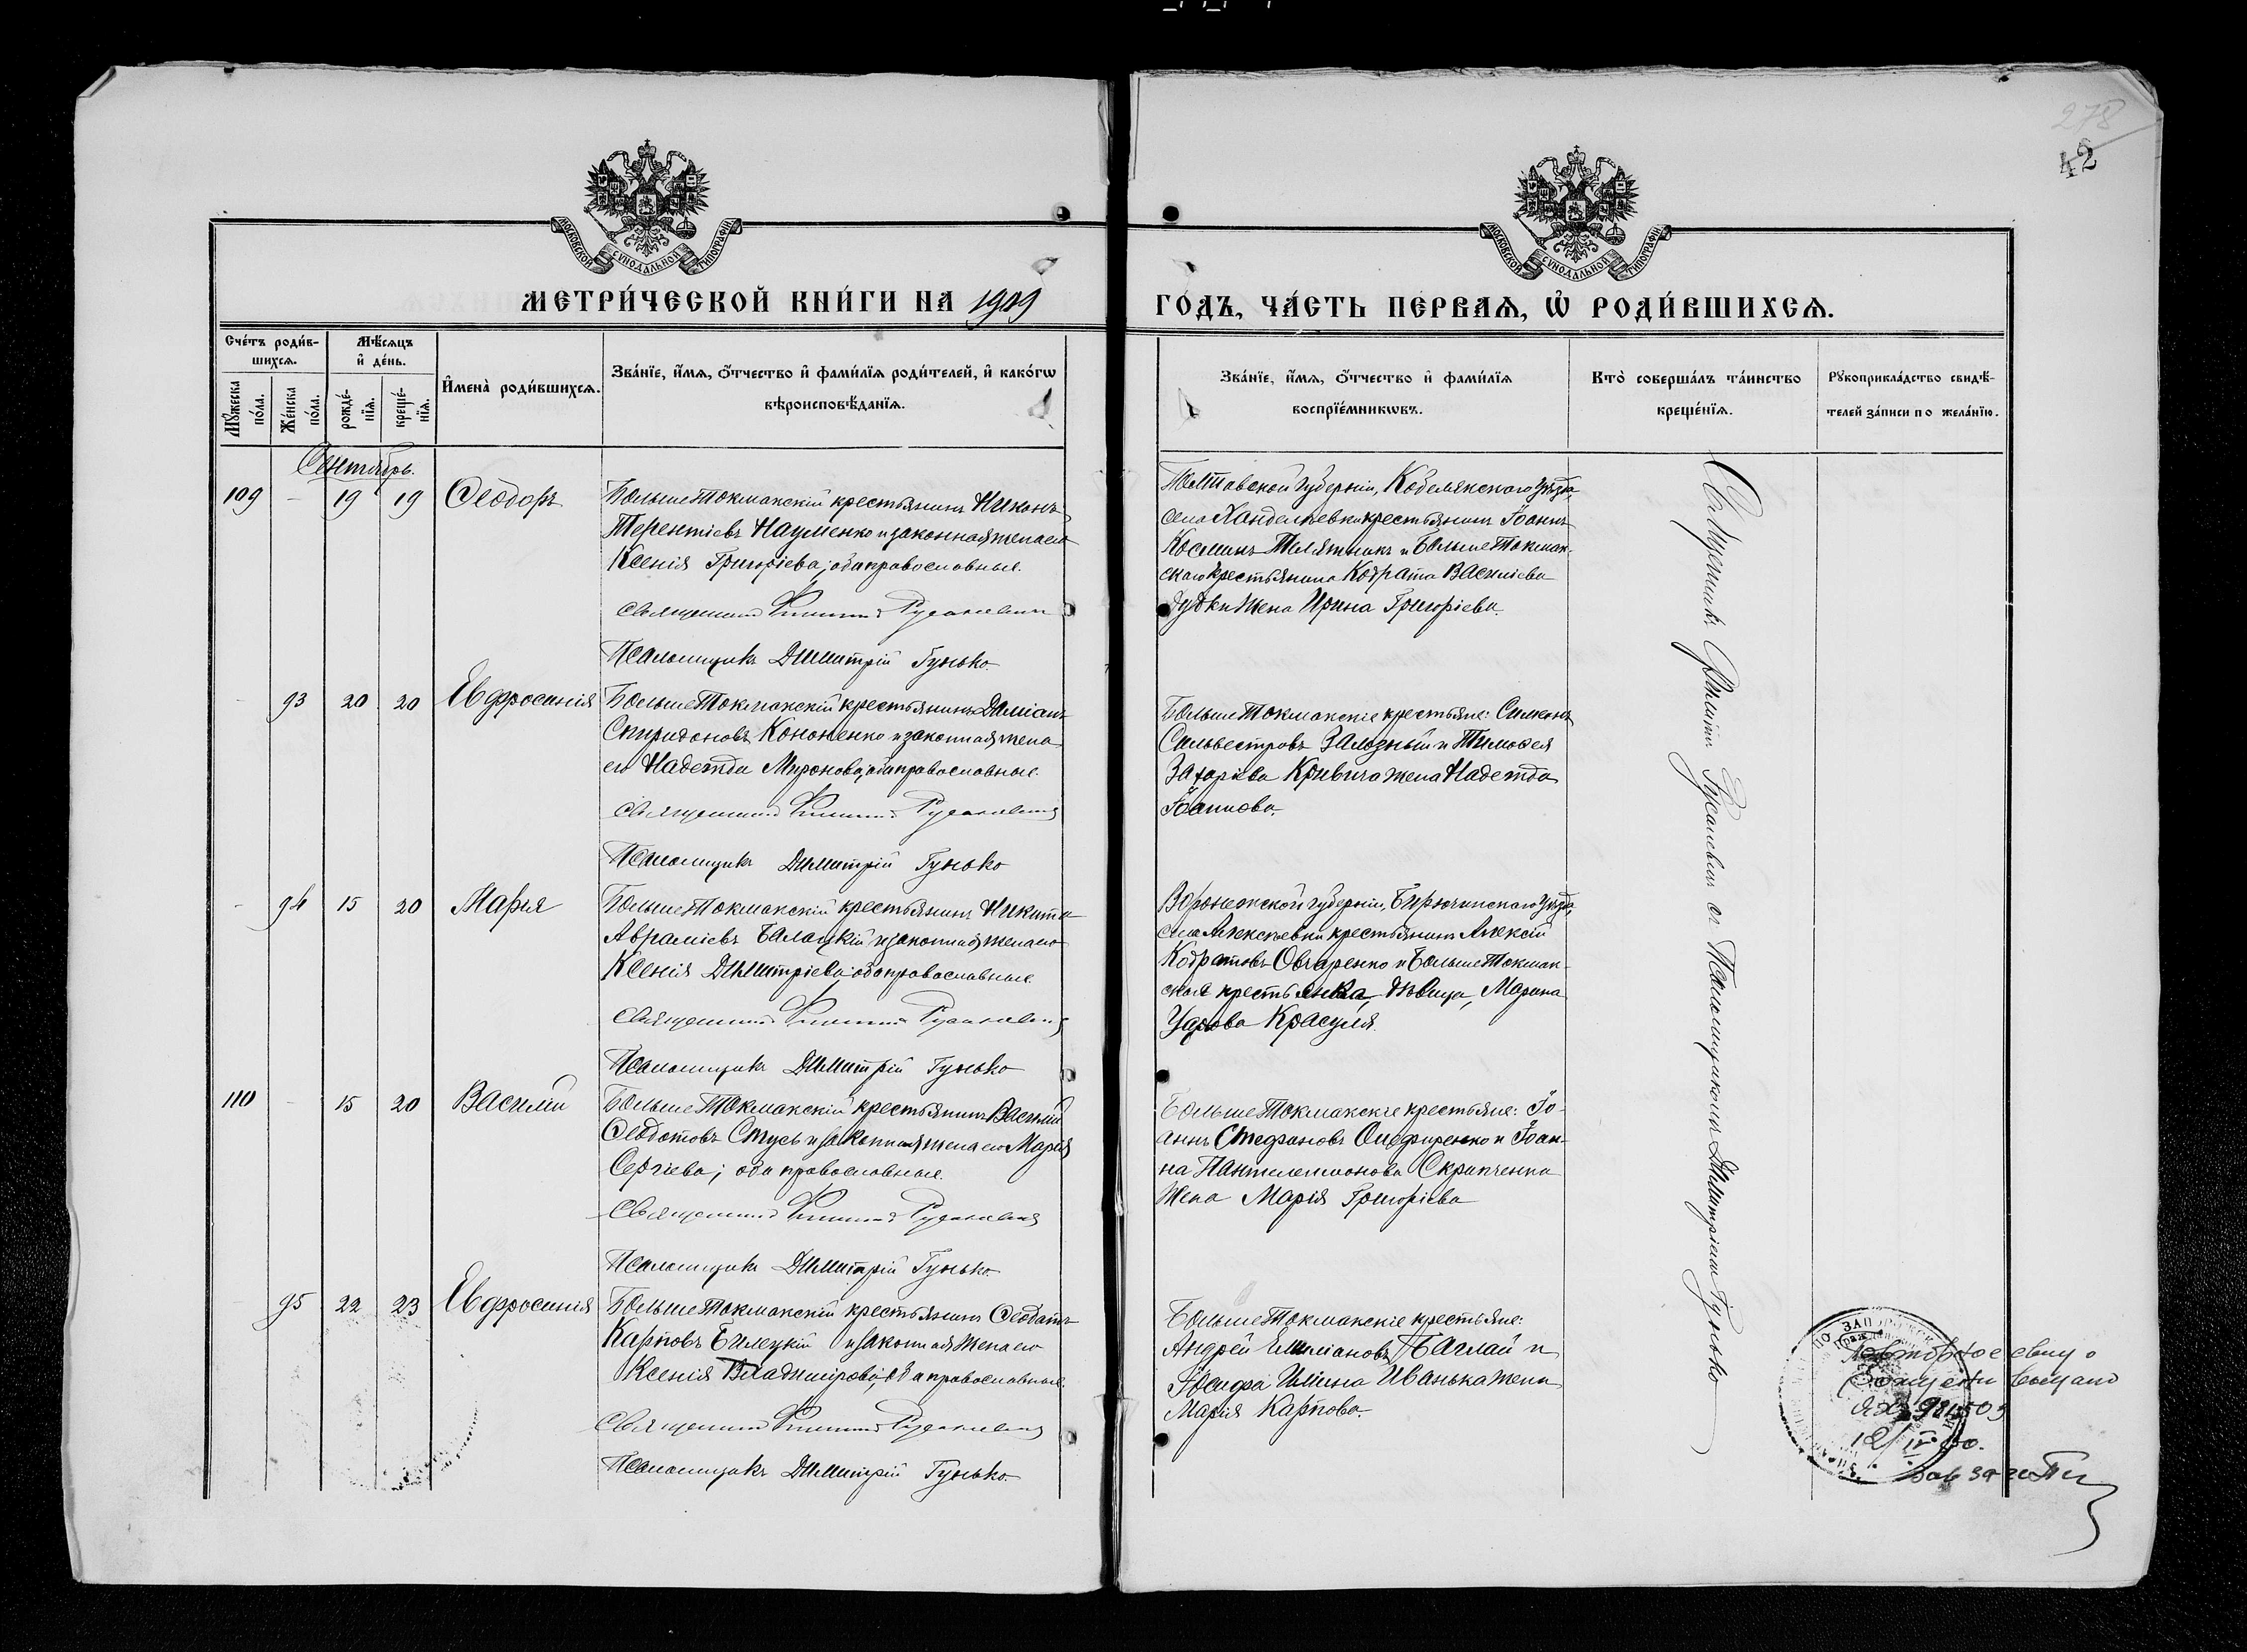 278
42
МОСКОВСКОЙ СѴНОДАЛЬНОЙ ТИПОГРАФІИ
МОСКОВСКОЙ СѴНОДАЛЬНОЙ ТИПОГРАФІИ
МЕТРИ́ЧЕСКОЙ КНИ́ГИ НА 1909
ГО́ДЪ, ЧА́СТЬ ПЕ́РВАѦ, Ѡ҆ РОДИ́ВШИХСѦ.
Сче́тъ роди́в-
шихсѧ.
Мѣ́сѧцъ
и҆ де́нь.
Мꙋ́жеска
по́ла.
Же́нска
по́ла.
рожде́-
нїѧ.
креще́-
нїѧ.
И҆мена̀ роди́вшихсѧ.
Зва́нїе, и҆́мѧ, ѻ҆́тчество и҆ фами́лїѧ роди́телей, и҆ како́гѡ
вѣроисповѣ́данїѧ.
Зва́нїе, и҆́мѧ, ѻ҆́тчество и҆ фами́лїѧ
воспрїе́мникѡвъ.
Кто̀ соверша́лъ та́инство
креще́нїѧ.
Рꙋкоприкла́дство свидѣ́-
телей за́писи по жела́нїю.
Сентябрь.
109 - 19 19 Ѳеодоръ
БольшеТокмакскій крестьянинъ Никонъ
Терентіевъ Науменко и законная жена его
Ксенія Григоріева; оба православные.
Священникъ Филиппъ Русаневичъ
Псаломщикъ Димитрій Гунько.
Полтавской губерніи, Кобелякскаго уѣзда,
села крестьянинъ Іоаннъ
Косминъ Телятникъ и БольшеТокмак-
скаго крестьянина Кодрата Василіева
Дудки жена Ирина Григоріева.
- 93 20 20 Евфросинія
БольшеТокмакскій крестьянинъ Даміанъ
Спиридоновъ Кононенко и законная жена
его Надежда Миронова; оба православные.
Священникъ Филиппъ Русаневичъ
Псаломщикъ Димитрій Гунько
БольшеТокмакскіе крестьяне: Симеонъ
Сильвестровъ Зализный и Тимоѳея
Захаріева жена Надежда
Іоаннова.
- 94 15 20 Марѳа
БольшеТокмакскій крестьянинъ Никита
Авраміевъ Балацкій и законная жена его
Ксенія Димитріева; оба православные.
Священникъ Филиппъ Русаневичъ
Псаломщикъ Димитрій Гунько
Воронежской губерніи, Бирюченскаго уѣзда,
села Алексѣевки крестьянинъ Алексій
Кодратовъ Овчаренко и БольшеТокмак-
ская крестьянка, дѣвица, Марина
Красуля.
110 - 15 20 Василій
БольшеТокмакскій крестьянинъ Василій
Ѳеодотовъ Стусь и законная жена его Марія
Сергіева; оба православные.
Священникъ Филиппъ Русаневичъ
Псаломщикъ Димитрій Гунько.
БольшеТокмакскіе крестьяне: Іо-
аннъ Стефановъ Онофриенко и Іоан-
на Пантелеимонова Скрипченка
жена Марія Григоріева
95 22 23 Евфросинія
БольшеТокмакскій крестьянинъ Ѳеодотъ
Карповъ Билецкій и законная жена его
Ксенія Владимірова; оба православные.
Священникъ Филиппъ Русаневичъ
Псаломщикъ Димитрій Гунько.
БольшеТокмакскіе крестьяне:
Андрей Емиліановъ Баглай и
Іосифа Ильина Иванька жена
Марія Карпова.
Священникъ Филиппъ Русаневичъ съ Псаломщикомъ Димитріемъ Гунько
Повторное свид о
рождении выдано